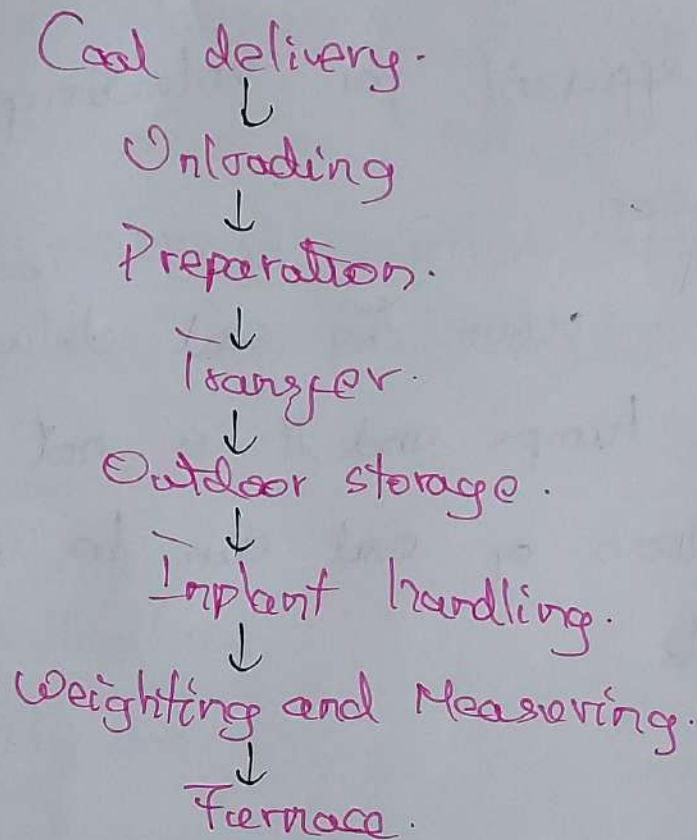 Coal delivery.
↓
Unloading
↓
Preparation.
↓
Transfer.
↓
Outdoor storage.
↓
Inplant handling.
↓
Weighting and Measuring.
↓
Furnace.